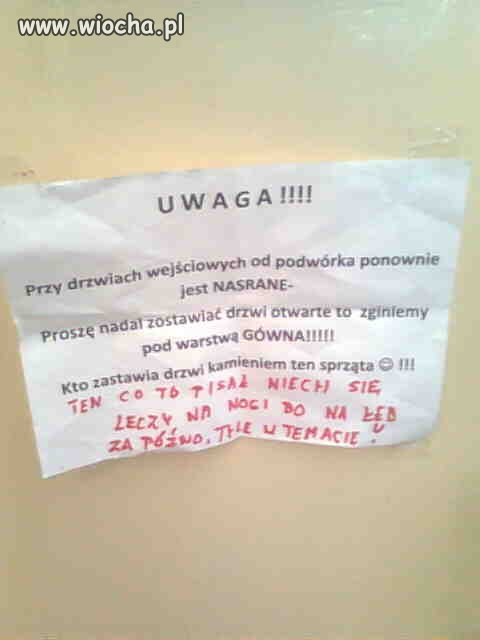 www.wiocha.pl
UWAGA!!!!
Przy drzwiach wejściowych od podwórka ponownie
jest NASRANE-
Proszę nadal zostawiać drzwi otwarte to zginiemy
pod warstwą GÓWNA!!!!!
Kto zastawia drzwi kamieniem ten sprząta ☺ !!!
TEN CO TO PISAŁ NIECH SIĘ
LECZY NA NOGI BO NA ŁEB
ZA PÓŹNO, TYLE W TEMACIE!